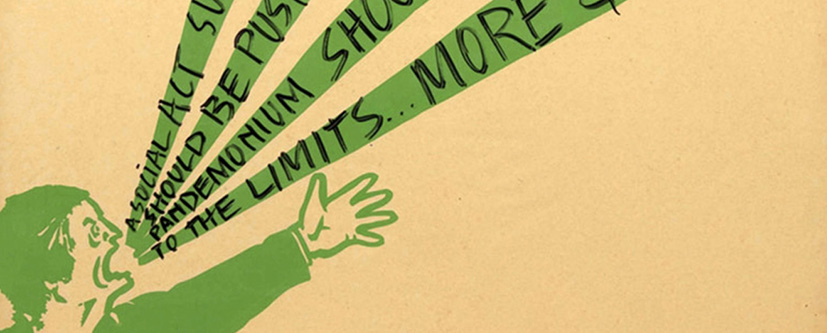 A SOCIAL ACT
SHOULD BE
PANDEMONIUM
TO THE LIMITS... MORE